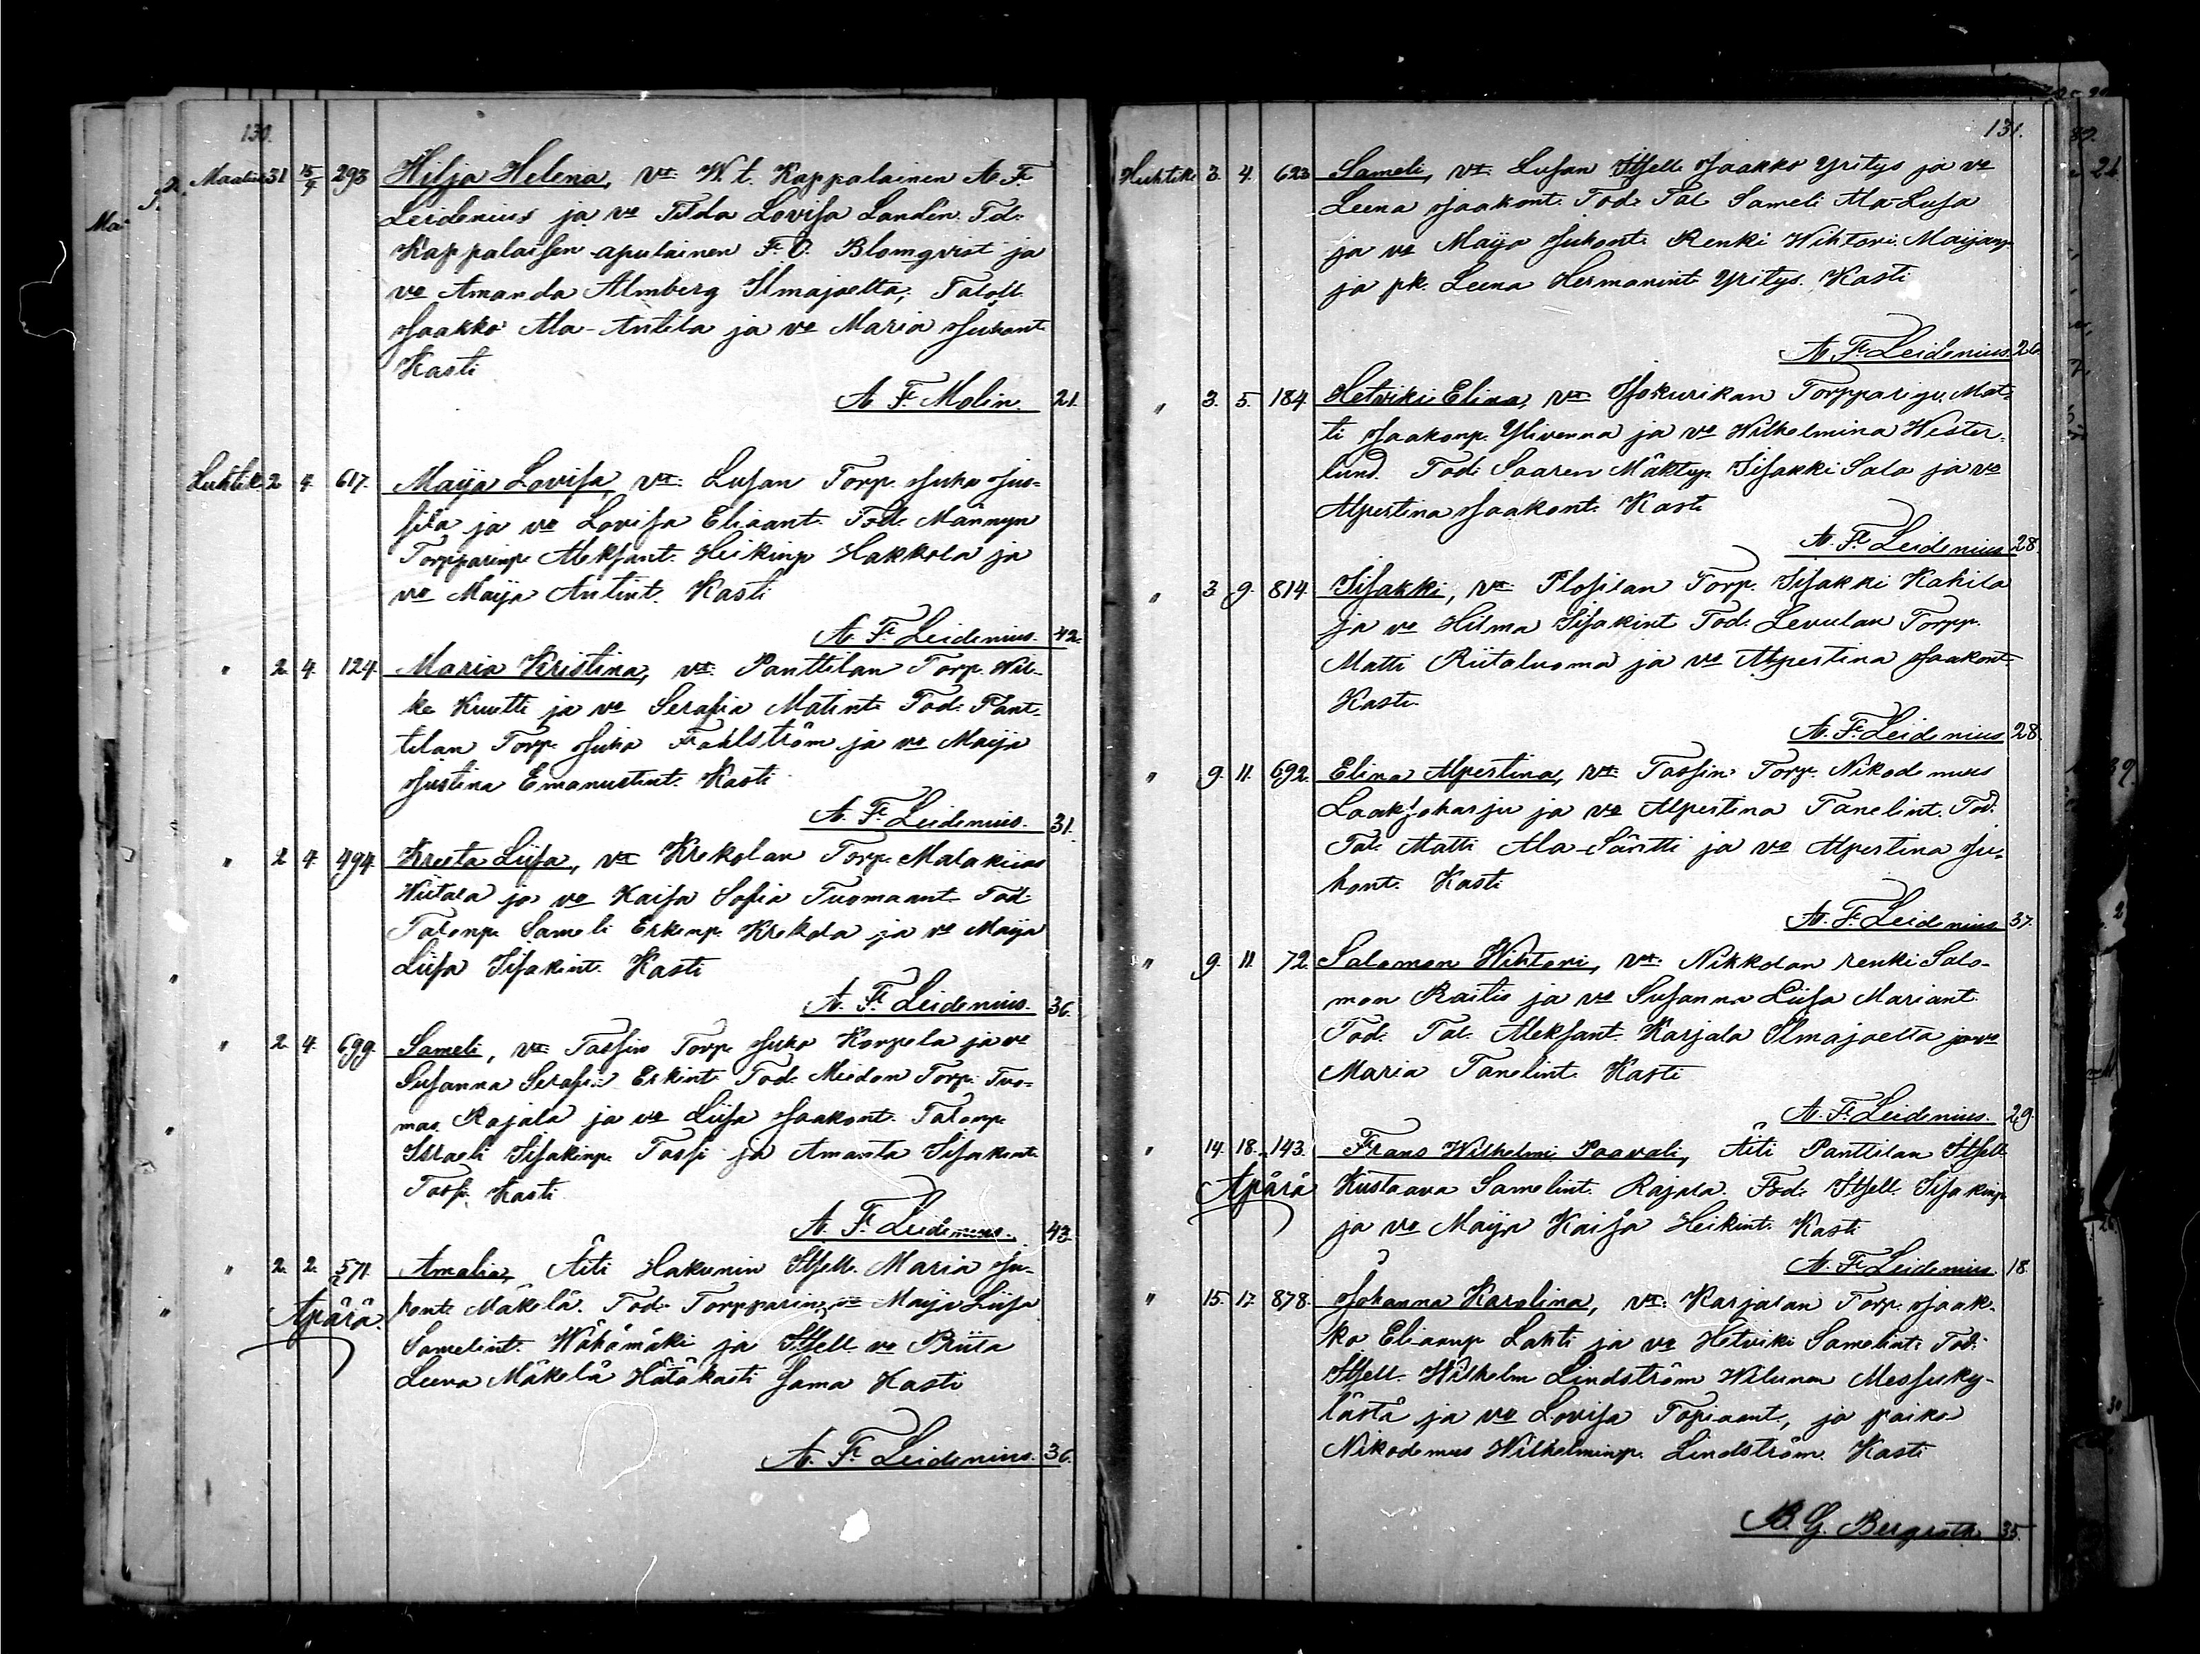 130.
Maalisk 31 15/4 293 Hilja Helena, vt: W. t. Kappalainen A. F.
Leidenius ja vo Tilda Lovisa Landén. Tod:
Kappalaisen apulainen F. O. Blomqvist ja
vo Amanda Almberg Ilmajoelta, Taloll.
Jaakko Ala-Anttila ja vo Maria Juhont.
Kasti
A. F. Molin. 21.
Huhtik. 2 4. 617. Maija Lovisa, vt: Lusan Torp. Juha Jus-
sila ja vo Lovisa Eliaant. Tod: Männyn
Torpparinp. Aleksant. Heikinp Hakkola ja
vo Maija Antint. Kasti
A. F. Leidenius. 42.
" 2. 4. 124. Maria Kristina, vt: Panttilan Torp. Wil-
ke Knutti ja vo Serafia Matint. Tod: Pant-
tilan Torp. Juha Fahlström ja vo Maija
Justina Emanuelint. Kasti
A. F. Leidenius. 31.
" 2 4. 494. Kreeta Liisa, vt: Krekolan Torp. Malakiias
Wiitala ja vo Kaisa Sofia Tuomaant. Tod:
Talonp. Sameli Erkinp. Krekola ja vo Maija
Liisa Iisakint. Kasti
A. F. Leidenius. 36.
" 2. 4. 699. Sameli, vt: Tassin Torp. Juha Korpela ja vo
Susanna Serafia Erkint. Tod: Miedon Torp. Tuo-
mas Rajala ja vo Liisa Jaakont. Talonp.
Israeli Iisakinp. Tassi ja Amanta Iisakint.
Tassi. Kasti
A. F. Leidenius. 43.
" 2. 2. 571. Amalia, Äiti Hakunin Itsell. Maria Ju-
Äpärä. hont. Mäkelä. Tod: Torpparin vo Maija Liisa
Samelint. Wähämäki ja Itsell. vo Priita
Leena Mäkelä Hätäkasti Sama Kasti
A. F. Leidenius. 36.
131.
Huhtik. 3. 4. 623 Sameli, vt: Lusan Itsell. Jaakko Yritys ja vo
Leena Jaakont. Tod: Tal. Sameli Ala-Lusa
ja vo Maija Juhont. Renki Wihtori Maijanp
ja pk. Leena Hermanint Yritys. Kasti
A. F. Leidenius. 26.
" 3. 5. 184. Hetviki Elina, vt: Jokurikan Torpparinp. Mat-
ti Jaakonp. Ylivenna ja vo Wilhelmina Wester-
lund. Tod: Saaren Mäktup. Iisakki Salo ja vo
Alpertina Jaakont. Kasti
A. F. Leidenius 28.
" 3 9. 814. Iisakki, vt: Flosilan Torp. Iisakki Kahila
ja vo Hilma Iisakint Tod: Levulan Torpp.
Matti Riitaluoma ja vo Alpertina Jaakont.
Kasti.
A. F. Leidenius 28.
" 9. 11. 692. Elina Alpertina, vt: Tassin Torp. Nikodemus
Laaksoharju ja vo Alpertina Tanelint. Tod:
Tal. Matti Ala-Säntti ja vo Alpertina Ju-
hont. Kasti
A. F. Leidenius 37.
" 9. 11. 72. Salomon Wihtori, vt: Nikkolan renki Salo-
mon Raitio ja vo Susanna Liisa Mariant.
Tod: Tal. Aleksant. Karjala Ilmajoelta ja vo
Maria Tanelint. Kasti
A. F. Leidenius. 29.
" 14. 18. 143. Frans Wilhelmi Paavali, Äiti Panttilan Itsell.
Äpärä Kustaava Samelint. Rajala. Tod: Itsell. Iisakinp
ja vo Maija Kaisa Heikint. Kasti
A. F. Leidenius. 18.
" 15. 17. 878. Johanna Karolina, vt: Karjalan Torp. Jaak-
ko Eliaanp Lahti ja vo Hetviki Samelint. Tod:
Itsell. Wilhelm Lindström Wilunen Messuky-
lästä ja vo Lovisa Topiaant., ja poika
Nikodemus Wilhelminp. Lindström. Kasti
B. G. Bergroth. 35.